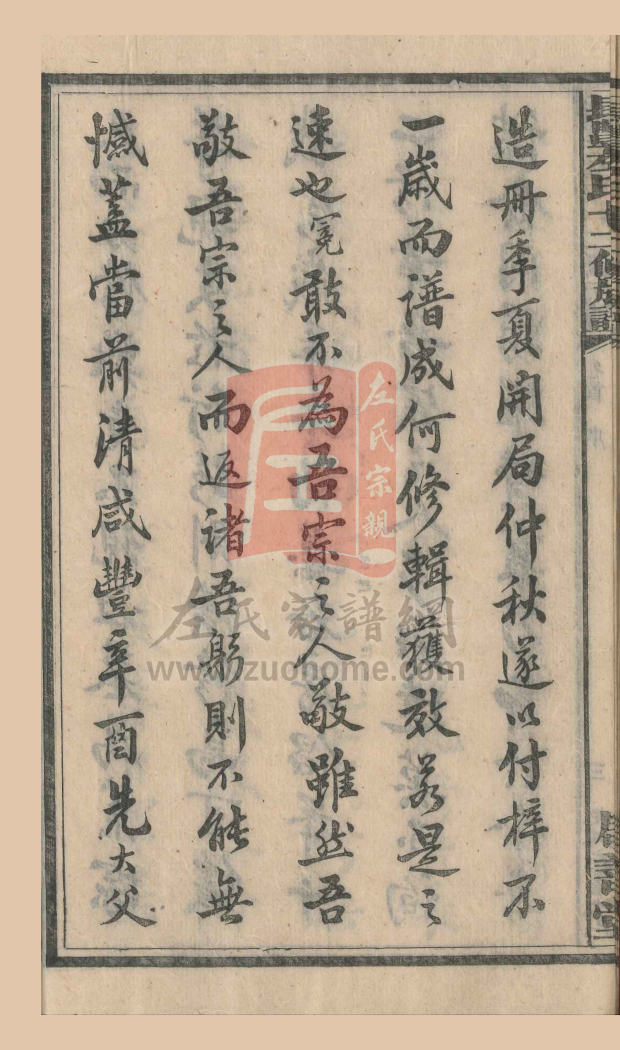 造册季夏開局仲秋遂以付梓不
一歲而譜成何修輯獲效若是之
速也冕敢不為吾宗之人敲雖然吾
敲吾宗之人而返諸吾躬則不能無
憾蓋當前清咸豐辛酉先大父
左氏宗親
左氏家譜網
www.zuohome.com